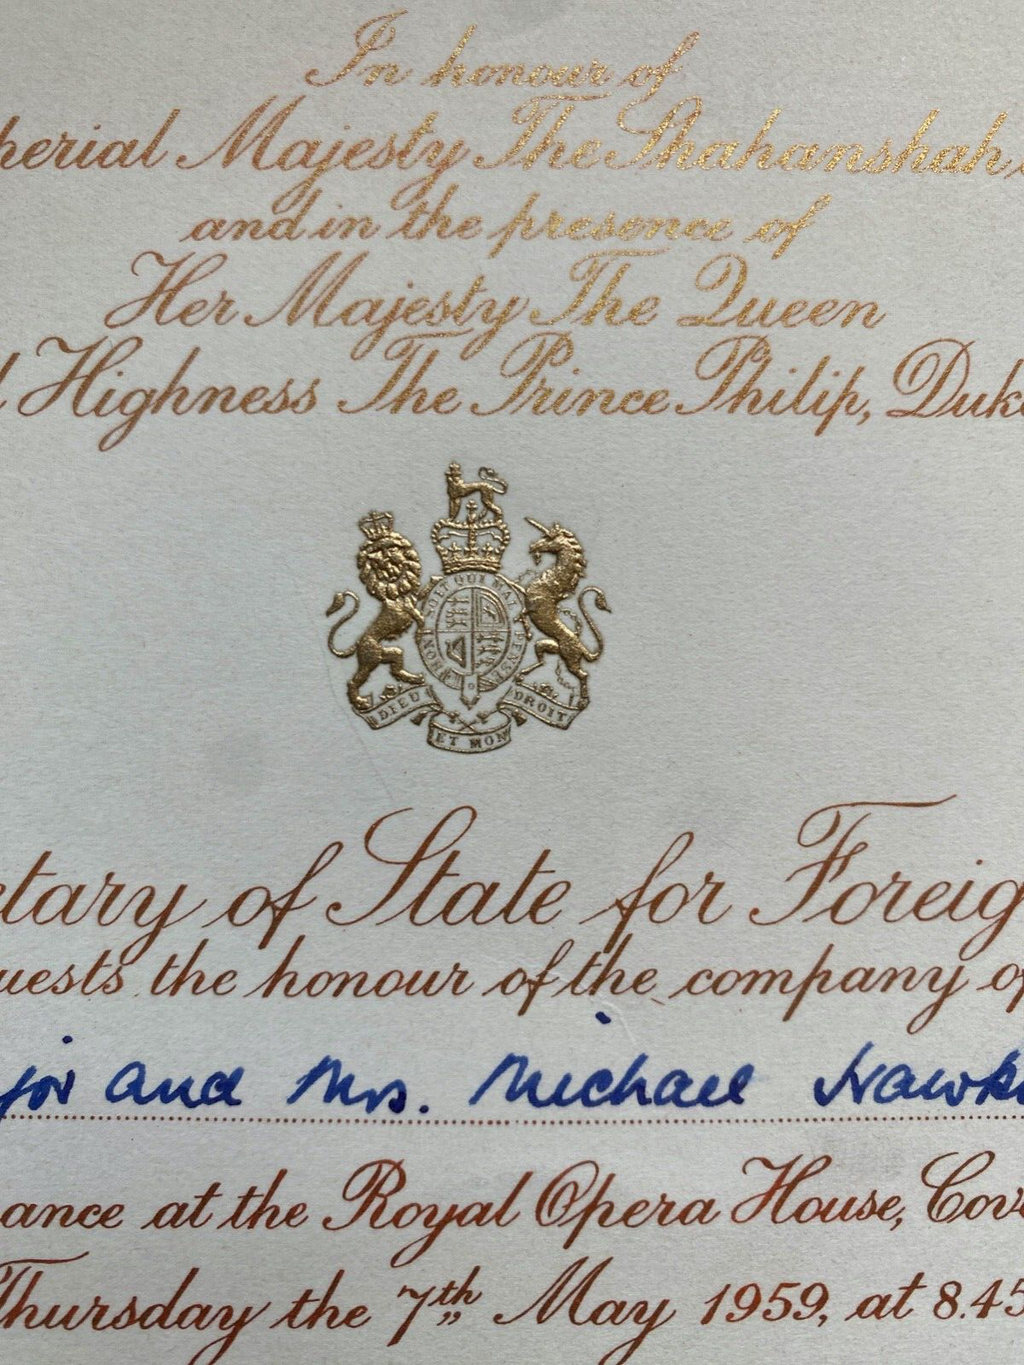 In honour of
perial Majesty The Shahanshah,
and in the presence of
Her Majesty The Queen
l Highness The Prince Philip, Duke
HONI SOIT QUI MAL Y PENSE
DIEU ET MON DROIT
etary of State for Foreig
uests the honour of the company of
jor and Mrs. Michael Hawki
ance at the Royal Opera House, Cove
Thursday the 7th May 1959, at 8.45